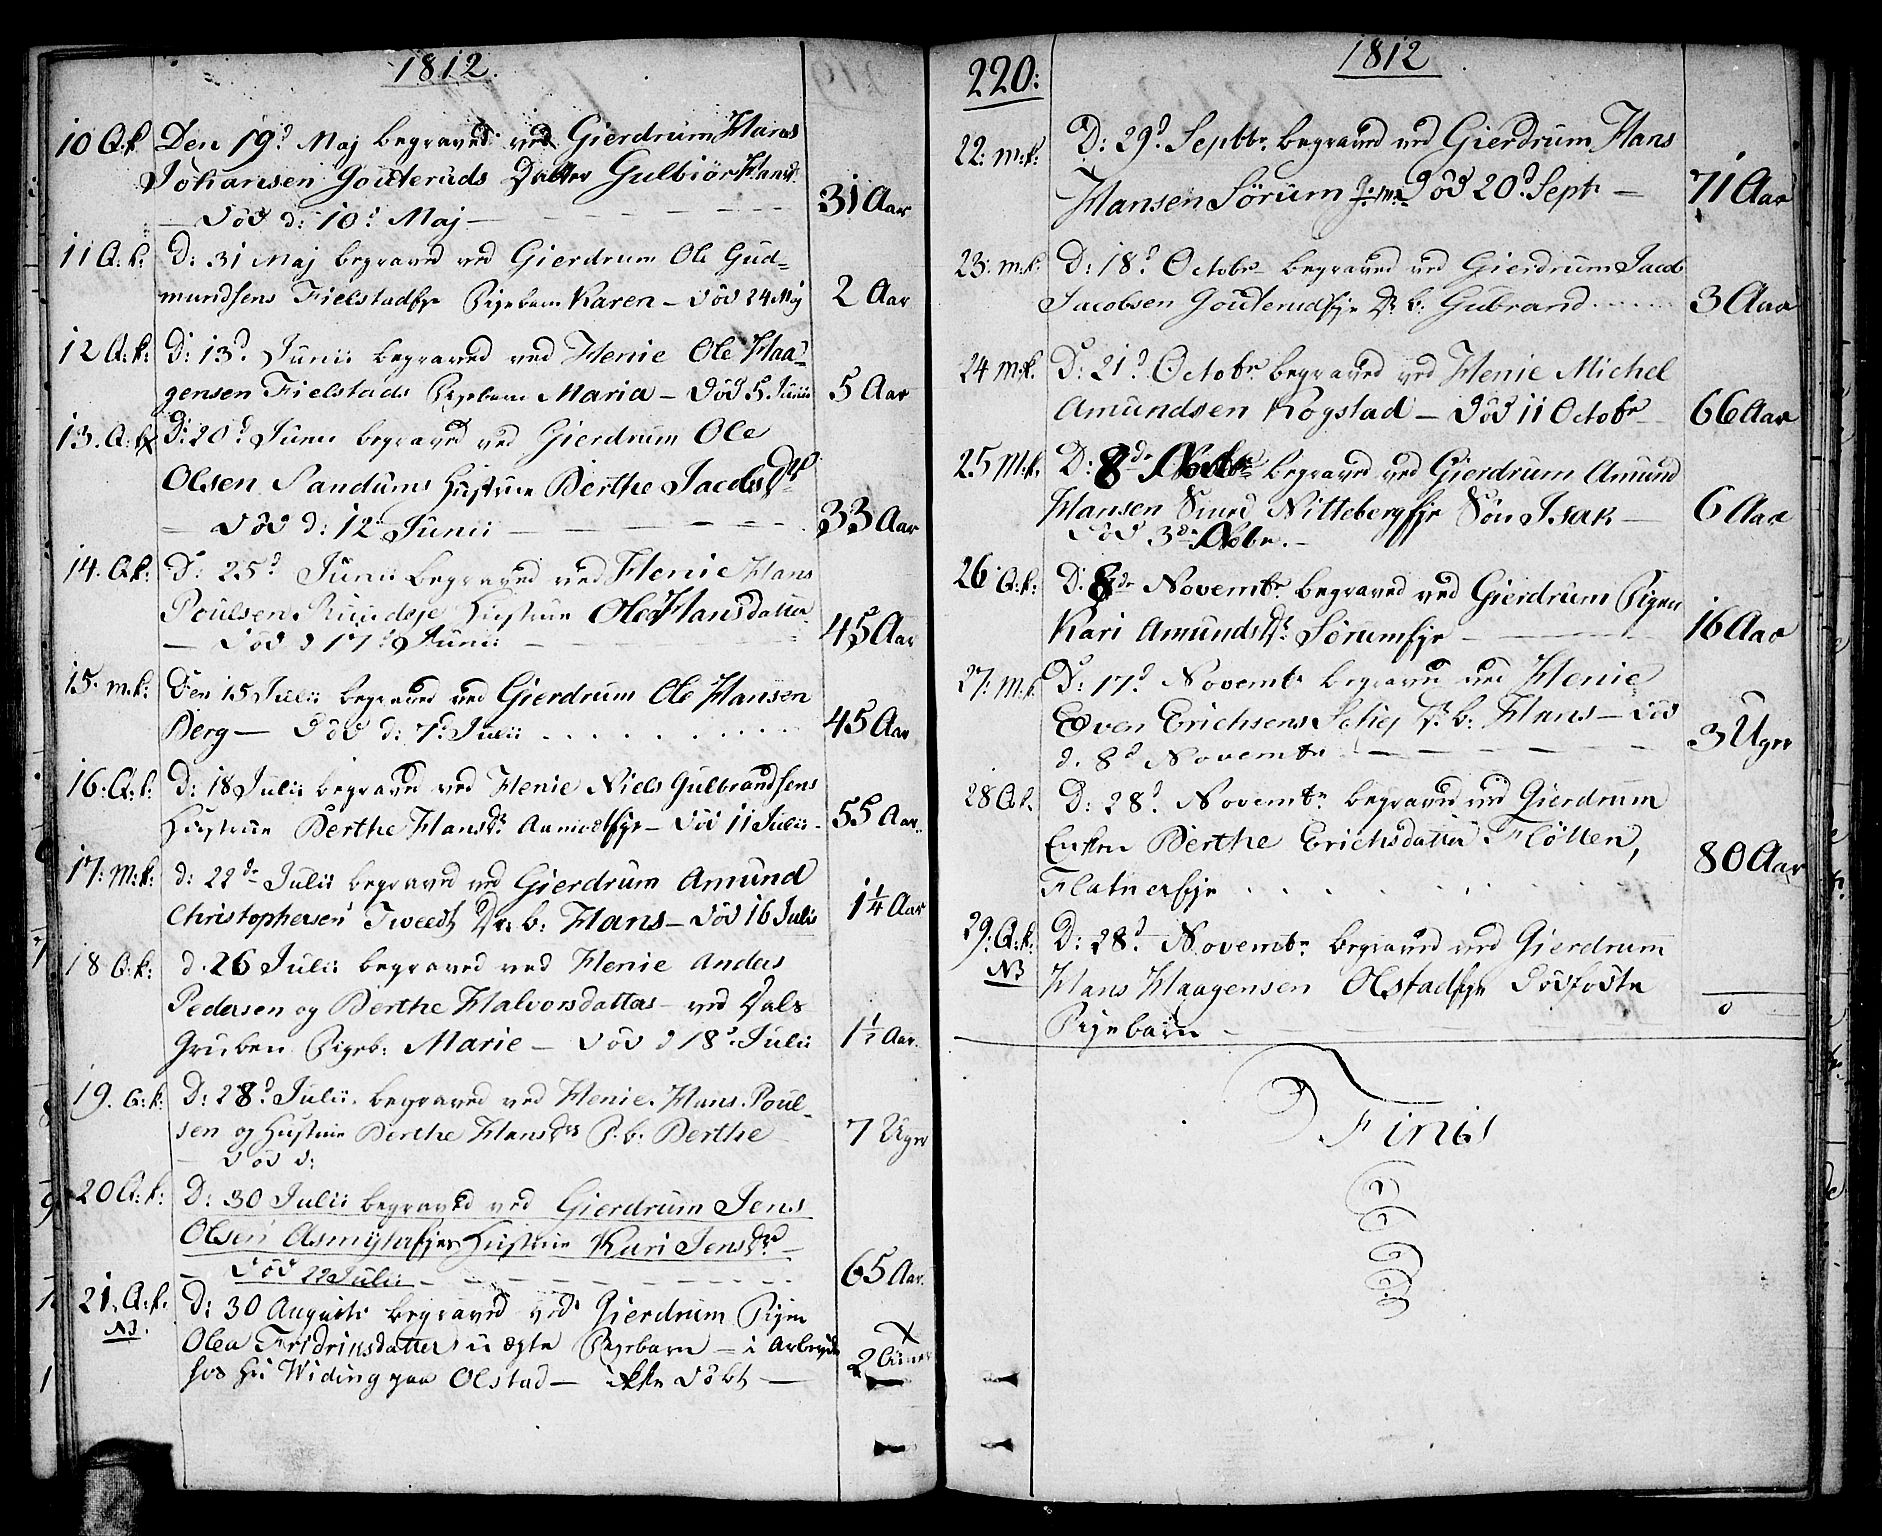 1812.
10 Q.k. Den 19d Maj begraved ved Gierdrum Hans
Johansen Gouteruds Datter Gulbiør Hansd.
— død d: 10d Maj — 31 Aar
11 Q:k: D: 31 Maj begraved ved Gierdrum Ole Gud-
mundsens Fielstadeje Pigebarn Karen — død 24 Maj 2 Aar
12 Q:k: D: 13d Junii begraved ved Henie Ole Haa-
gensen Fielstads Pigebarn Maria — død 5. Junii 5 Aar
13. Q:k: D: 20d Junii begraved ved Gierdrum Ole
Olsen Sandums Hustrue Berthe Jacobsdr
— død d: 12 Junii — 33 Aar
14. Q.k: D: 25d Junii begraved ved Henie Hans
Poulsen Hustrue Olea Hansdatter
— død d 17d Junii — 45 Aar
15. m.k: Den 15 Julii begraved ved Gierdrum Ole Hansen
Berg — død d: 7d Julii 45 Aar
16. Q.k: D: 18 Julii begraved ved Henie Niels Gulbrandsens
Hustrue Berthe Hansdr Aamodteje — død 11 Julii 55 Aar
17: M:k: d: 22de Julii begraved ved Gierdrum Amund
Christophersen Tweedt Dr. b: Hans — død 16 Julii 1¼ Aar
18 Q.k: d. 26 Julii begraved ved Henie Anders
Pedersen og Berthe Halvorsdatter — ved Dals
Gruben Pigeb: Marie — død d 18d Julii 1½ Aar.
19. Q:k: D: 28d Julii. begraved ved Henie. Hans. Poul-
sen og Hustrue Berthe Hansdr P. b: Berthe
— død d: 7 Uger
20 Q:k: D: 30 Julii begraved ved Gierdrum Jens
Olsen Asmyhreje Hustrue Kari Jensdr —
— død 22 Julii — 65 Aar.
21. Q.k. D: 30 Augusti begraved ved Gierdrum Pigen
NB. Olea Fridriksdatter uægte Pigebarn — i Arbejde
hos Hr Widing paa Olstad — ikke døbt — 2
220:
1812
22: m:k: D: 29d Septbr. begraved ved Gierdrum Hans
Hansen Sørum død 20d Septr — 71 Aar
23: m:k: D: 18d Octobr begraved ved Gierdrum Jacob
Jacobsen Gouterudseje Dr. b: Gubrand 3 Aar
24 m:k. D: 21d Octobr begraved ved Henie Michel
Amundsen Kogstad — død 11 Octobr 66 Aar
25 M:k. D: 8de Novbr begraved ved Gierdrum Amund
Hansen Smed Nittebergeje Søn Isak — 6 Aar
død 3de Nobr. —
26 Q.k: D. 8de Novembr begraved ved Gierdrum Pigen
Kari Amundsdr. Sørumeje — 16 Aar
27: M:k. D: 17d Novembr begraved ved Henie
Even Erichsens Dr. b: Hans — død
d. 8d Novembr 3 Uger
28 Q.k. D: 28d Novembr begraved ved Gierdrum
Enken Berthe Erichsdatter Fløtten,
Flatnereje 80 Aar
29: Q.k: D: 28d Novembr begraved ved Gierdrum
NB Hans Haagensen Olstadeje dødfødte
Pigebarn — 0
Finis